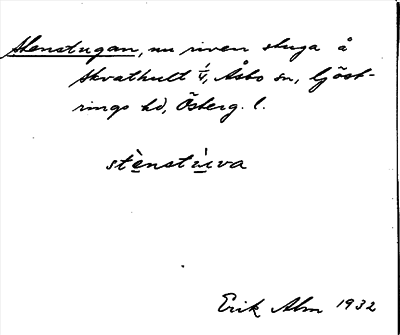 Stenstugan, nu riven stuga å
Skvathult 1/4, Åsbo sn, Göst-
rings hd, Österg. l.
stènstúva
Erik Alm 1932